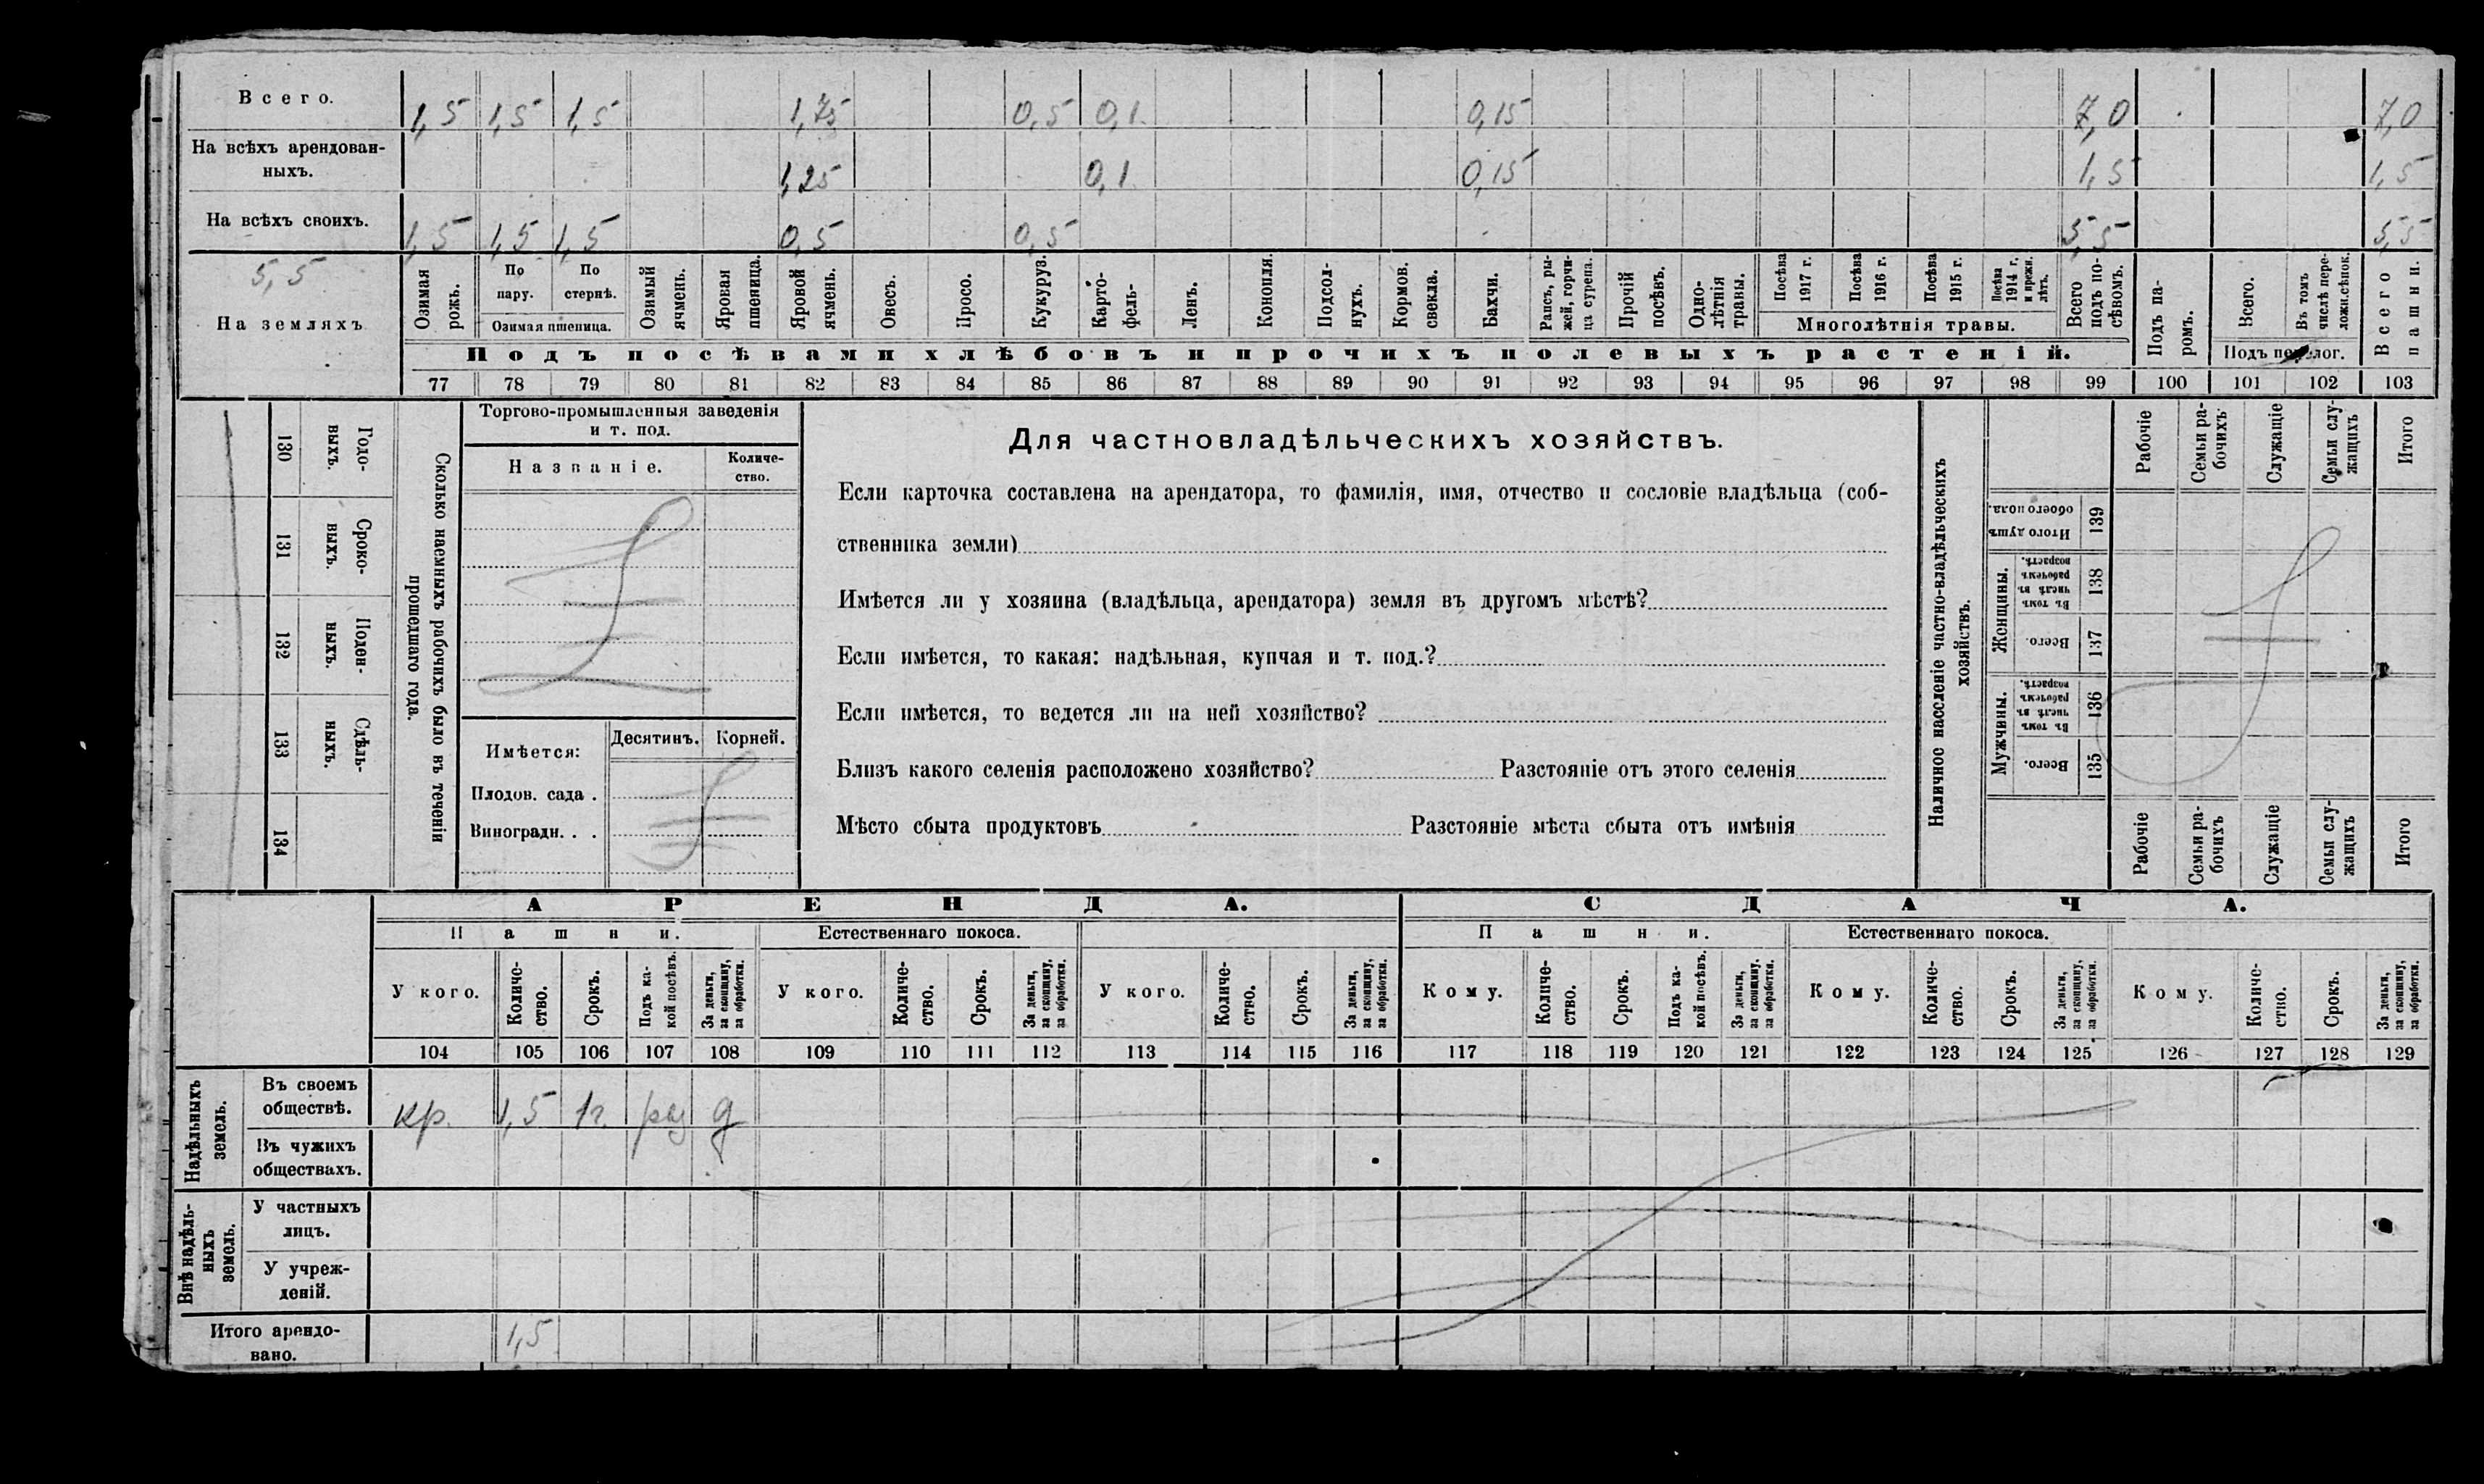 Всего. 1,5 1,5 1,5 1,75 0,5 0,1 0,15 7,0 7,0
На всѣхъ арендован-
ныхъ. 1,25 0,1 0,15 1,5 1,5
На всѣхъ своихъ. 1,5 1,5 1,5 0,5 0,5 5,5 5,5
5,5
На земляхъ
Озимая рожь.
По пару.
По стернѣ.
Озимая пшеница.
Озимый ячмень.
Яровая пшеница.
Яровой ячмень.
Овесъ.
Просо.
Кукуруз.
Карто-
фель-
Ленъ.
Конопля.
Подсол-
нухъ.
Кормов.
свекла.
Бахчи.
Рапсъ, ры-
жей, горчи-
ца сурепа.
Прочій
посѣвъ.
Одно-
лѣтнія
травы.
Посѣва
1917 г.
Посѣва
1916 г.
Посѣва
1915 г.
Посѣва
1914 г.
и прежн.
лѣтъ.
Многолѣтнія травы.
Всего
подъ по-
сѣвомъ.
Подъ па-
ромъ.
Всего.
Въ томъ
числѣ пере-
ложн.сѣнок.
Подъ перелог.
Всего
пашни.
Подъ посѣвами хлѣбовъ и прочихъ полевыхъ растеній.
77 78 79 80 81 82 83 84 85 86 87 88 89 90 91 92 93 94 95 96 97 98 99 100 101 102 103
130 Годо-
выхъ.
131 Сроко-
ныхъ.
132 Поден-
ныхъ.
133 Сдѣль-
ныхъ.
134
Сколько наемныхъ рабочихъ было въ теченіи
прошедшаго года.
Торгово-промышленныя заведенія
и т. под.
Названіе.
Количе-
ство.
Имѣется: Десятинъ. Корней.
Плодов. сада .
Виноградн. . .
Для частновладѣльческихъ хозяйствъ.
Если карточка составлена на арендатора, то фамилія, имя, отчество и сословіе владѣльца (соб-
ственника земли)
Имѣется ли у хозяина (владѣльца, арендатора) земля въ другомъ мѣстѣ?
Если имѣется, то какая: надѣльная, купчая и т. под.?
Если имѣется, то ведется ли на ней хозяйство?
Близъ какого селенія расположено хозяйство? Разстояніе отъ этого селенія
Мѣсто сбыта продуктовъ Разстояніе мѣста сбыта отъ имѣнія
Наличное населеніе частно-владѣльческихъ
хозяйствъ.
Рабочіе
Семьи ра-
бочихъ
Служащіе
Семьи слу-
жащихъ
Итого
Итого душъ
обоего пола.
139
Женщины.
Въ томъ
числѣ въ
рабочемъ
возрастѣ.
138
Всего.
137
Мужчины.
Въ томъ
числѣ въ
рабочемъ
возрастѣ.
136
Всего.
135
Рабочіе
Семьи ра-
бочихъ
Служащіе
Семьи слу-
жащихъ
Итого
АРЕНДА. СДАЧА.
Пашни. Естественнаго покоса. Пашни. Естественнаго покоса.
У кого.
Количе-
ство.
Срокъ.
Подъ ка-
кой посѣвъ.
За деньги,
за скопщину,
за обработки.
У кого.
Количе-
ство.
Срокъ.
За деньги,
за скопщину,
за обработки.
У кого.
Количе-
ство.
Срокъ.
За деньги,
за скопщину,
за обработки.
Кому.
Количе-
ство.
Срокъ.
Подъ ка-
кой посѣвъ.
За деньги,
за скопщину.
за обработки.
Кому.
Количе-
ство.
Срокъ.
За деньги,
за скопщину,
за обработки.
Кому.
Количе-
ство.
Срокъ.
За деньги,
за скопщину,
за обработки.
104 105 106 107 108 109 110 111 112 113 114 115 116 117 118 119 120 121 122 123 124 125 126 127 128 129
Надѣльныхъ
земель.
Въ своемъ
обществѣ. кр. 1,5 1г. д
Въ чужихъ
обществахъ.
Внѣ надѣль-
ныхъ
земель.
У частныхъ
лицъ.
У учреж-
деній.
Итого арендо-
вано. 1,5